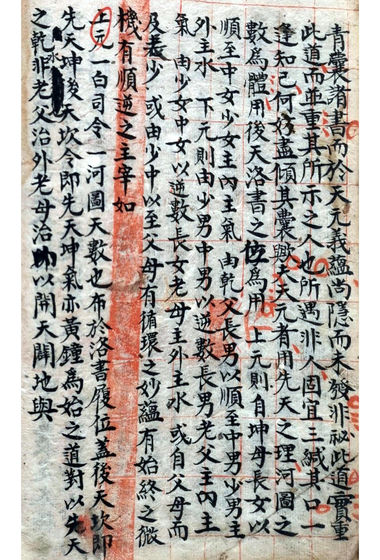 青囊諸書而於天元義蘊尚隱而未發非祕此道實重
此道而並重其所示之人也所遇非人固宜三緘其口一
逢知己何盡傾其囊歟夫天元者用先天之理河圖之
數為體用後天洛書之位為用上元則自坤母長女以
順至中女少女主內主氣由乾父長男以順至中男少男主
外主水 下元則由少男中男以逆數長男老父主內主
氣 由少女中女以逆數長女老母主外主水 或自父母而
及少 或由少中以至父母有循環之妙蘊有始終之微
機有順逆之主宰如
上元一白司令一河圖天數也布於洛書履位蓋後天坎即
先天坤後天坎令即先天坤氣亦黃鐘為始之道對以先天
之乾水非老父治外老母治以開天闢地與